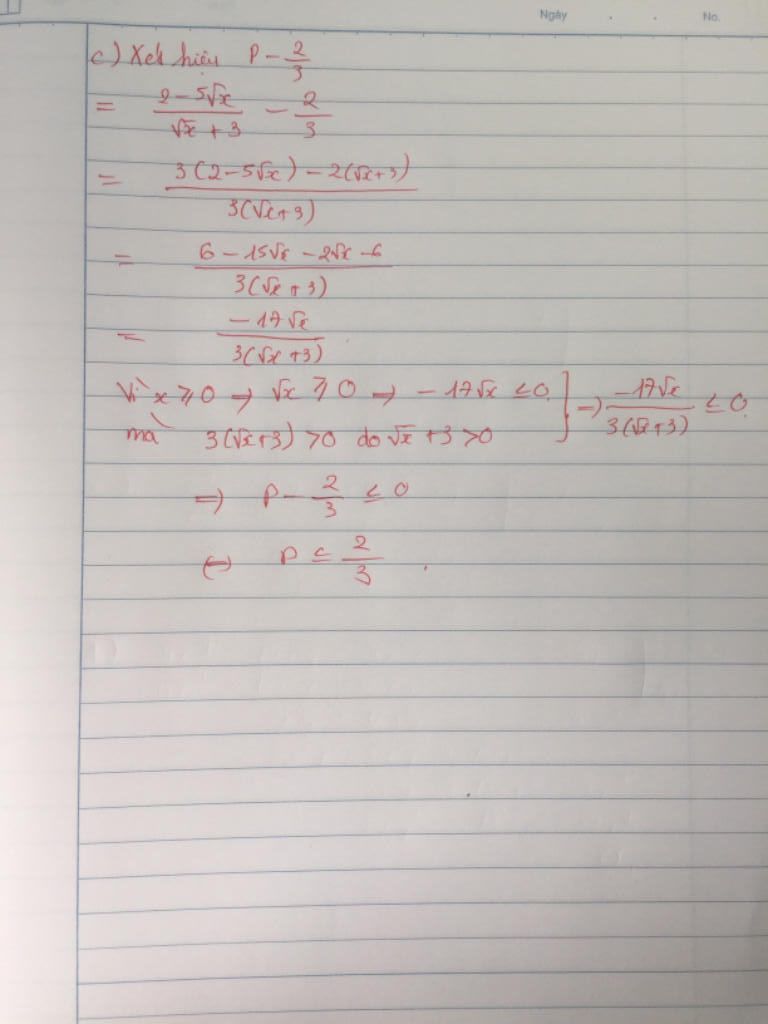 Ngày . . No.
c) Xét hiệu P - 2/3
= (2 - 5√x)/(√x + 3) - 2/3
= (3(2 - 5√x) - 2(√x + 3))/(3(√x + 3))
= (6 - 15√x - 2√x - 6)/(3(√x + 3))
= (-17√x)/(3(√x + 3))
Vì x ⩾ 0 → √x ⩾ 0 → -17√x ≤ 0. } => (-17√x)/(3(√x + 3)) ≤ 0.
mà 3(√x + 3) > 0 do √x + 3 > 0
=> P - 2/3 ≤ 0
<=> P ≤ 2/3.